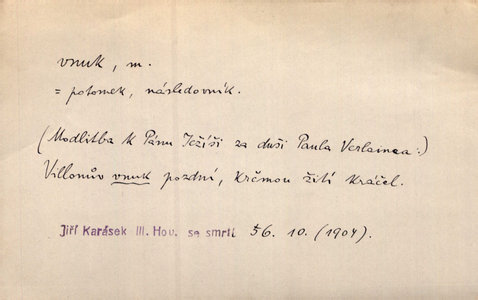 vnuk, m.
= potomek, následovník.
(Modlitba k Pánu Ježíši za duši Paula Verlainea:)
Villonův vnuk pozdní, krčmou žití kráčel.
Jiří Karásek III. Hov. se smrtí 56. 10. (1904).